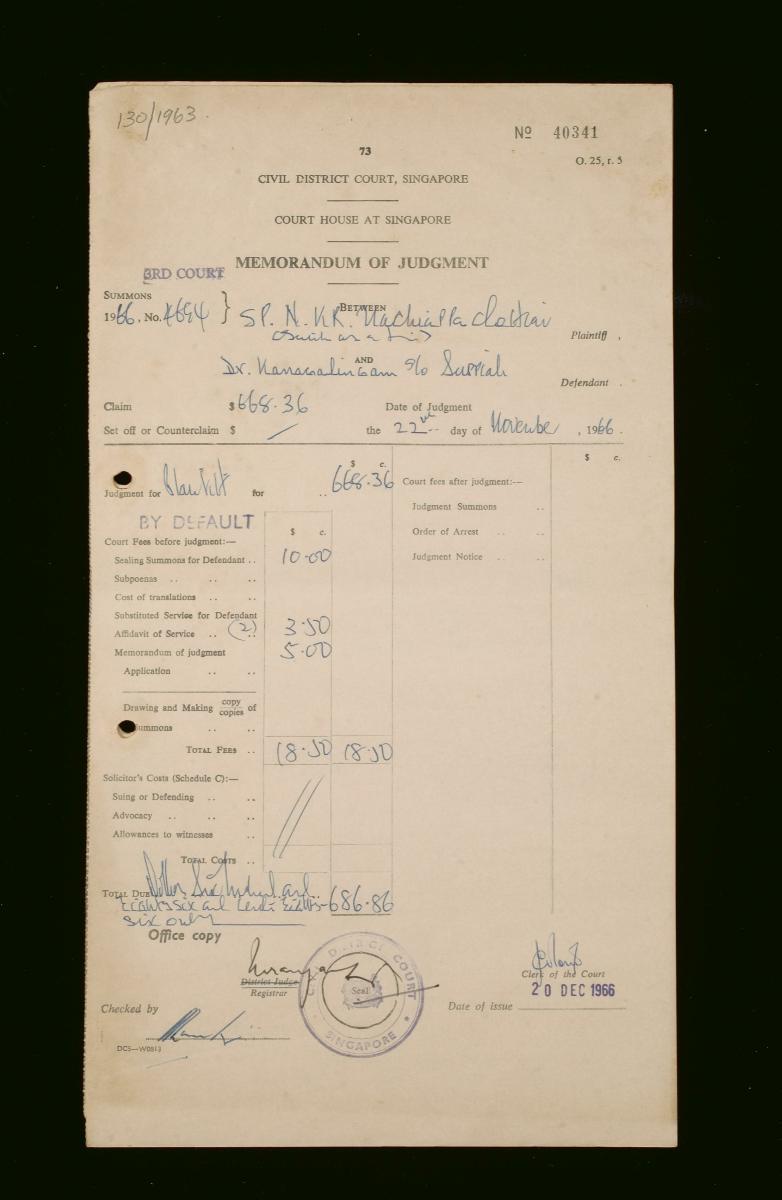 130/1963.
Nº 40341
73
O. 25, r. 5
CIVIL DISTRICT COURT, SINGAPORE
COURT HOUSE AT SINGAPORE
3RD COURT
MEMORANDUM OF JUDGMENT
SUMMONS
1966. No. 4694
BETWEEN
SP. N. KR. Nachiappa Chettiar
Plaintiff ,
AND
Dr. Kanagalingam s/o Suppiah
Defendant .
Claim $ 668.36 Date of Judgment
Set off or Counterclaim $ / the 22nd day of November , 1966 .
$ c. $ c.
Judgment for Plaintiff for .. 668.36 Court fees after judgment:—
Judgment Summons ..
BY DEFAULT
Order of Arrest .. ..
$ c.
Court Fees before judgment:—
Judgment Notice .. ..
Sealing Summons for Defendant .. 10.00
Subpoenas .. .. ..
Cost of translations .. ..
Substituted Service for Defendant
Affidavit of Service .. (2) .. 3.50
Memorandum of judgment 5.00
Application .. ..
Drawing and Making copy copies of
Summons .. ..
TOTAL FEES .. 18.50 18.50
Solicitor's Costs (Schedule C):—
Suing or Defending .. ..
Advocacy .. .. ..
Allowances to witnesses ..
TOTAL COSTS ..
TOTAL DUE Dollars Six hundred and .. 686.86
Eighty six and cents Eighty
six only
Office copy
CIVIL DISTRICT COURT
Seal
SINGAPORE
District Judge
Registrar
Clerk of the Court
20 DEC 1966
Checked by
Date of issue
DCS—W0813